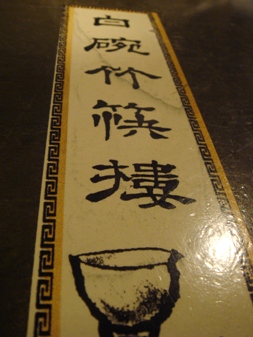 白碗竹筷樓